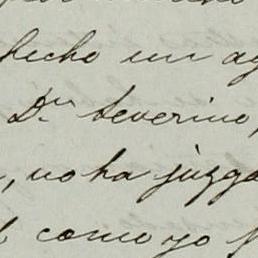 hecho un ag
Dn. Severino,
, no ha juzga
como yo